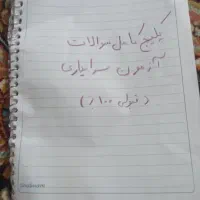 پکیج کامل سوالات
آزمون سرایداری
(قبولی ۱۰۰٪)